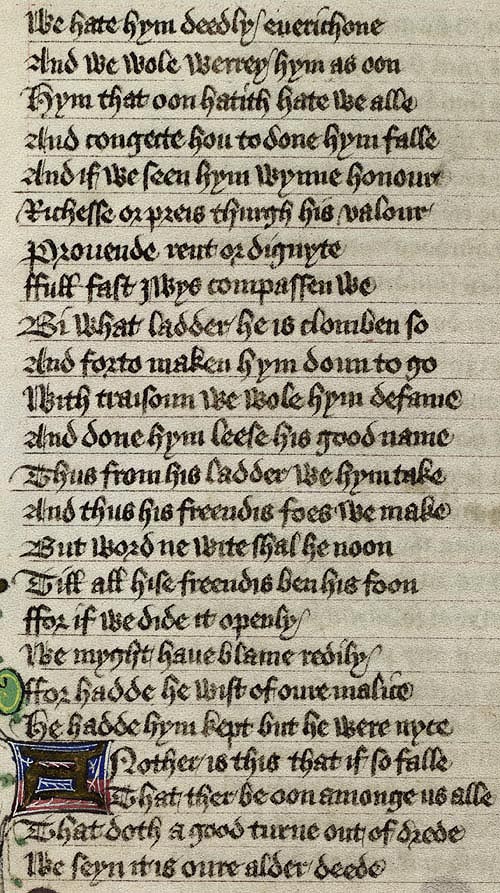 We hate hym deedly euerichone
And we wole werrey hym as oon
Hym that oon hatith hate we alle
And congecte hou to done hym falle
And if we seen hym wynne honour
Richesse or preis thurgh his valour
Prouende rent or dignyte
Ffull fast Iwys compassen we
Bi what ladder he is clomben so
And forto maken hym doun to go
With traisoun we wole hym defame
And done hym leese his good name
Thus from his ladder we hym take
And thus his freendis foes we make
But word ne wite shal he noon
Till all hise freendis ben his foon
Ffor if we dide it openly
We myght haue blame redily
Ffor hadde he wist of oure malice
He hadde hym kept but he were nyce
Another is this that if so falle
That ther be oon amonge us alle
That doth a good turne out of drede
We seyn it is oure alder deede